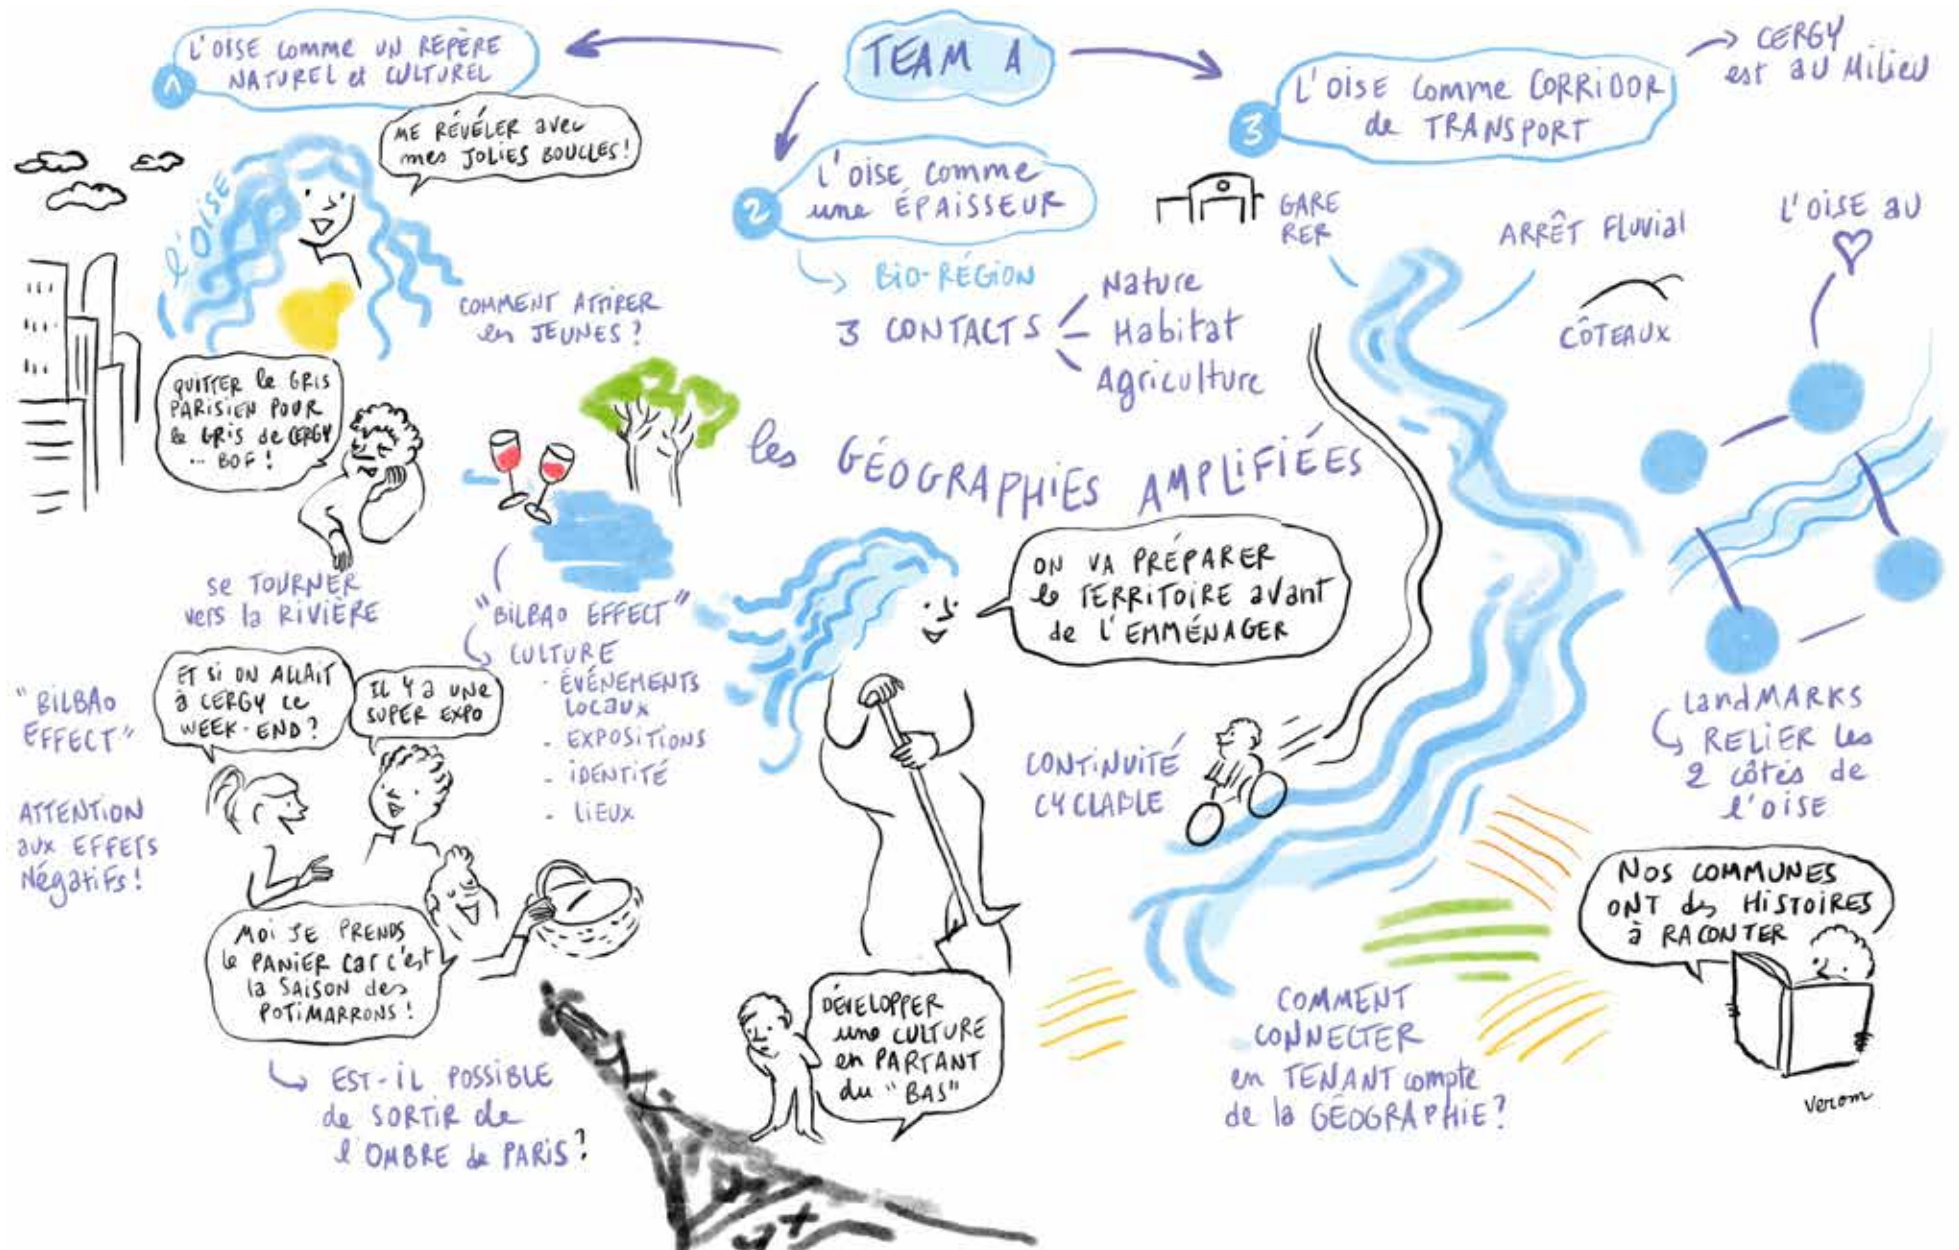 TEAM A
1
L'OISE comme UN REPÈRE
NATUREL et CULTUREL
ME RÉVÉLER avec
mes JOLIES BOUCLES!
l'OISE
COMMENT ATTIRER
les JEUNES?
QUITTER le GRIS
PARISIEN POUR
le GRIS de CERGY
... BOF!
se TOURNER
vers la RIVIÈRE
"BILBAO EFFECT"
CULTURE
- ÉVÉNEMENTS
LOCAUX
- EXPOSITIONS
- IDENTITÉ
- LIEUX
"BILBAO
EFFECT"
ATTENTION
aux EFFETS
NégatiFs!
ET SI ON ALLAIT
à CERGY CE
WEEK-END?
IL Y a UNE
SUPER EXPO
MOI JE PRENDS
le PANIER car c'est
la SAISON des
POTIMARRONS!
EST-IL POSSIBLE
de SORTIR de
l'OMBRE de PARIS?
2
L'OISE comme
une ÉPAISSEUR
BIO-RÉGION
3 CONTACTS
Nature
Habitat
Agriculture
les GÉOGRAPHIES AMPLIFIÉES
ON VA PRÉPARER
le TERRITOIRE avant
de L'EMMÉNAGER
DÉVELOPPER
une CULTURE
en PARTANT
du "BAS"
3
L'OISE comme CORRIDOR
de TRANSPORT
CERGY
est au Milieu
GARE
RER
ARRÊT FLUVIAL
CÔTEAUX
L'OISE au
CONTINUITÉ
CYCLABLE
LandMARKS
RELIER les
2 côtés de
l'OISE
NOS COMMUNES
ONT des HISTOIRES
à RACONTER
COMMENT
CONNECTER
en TENANT compte
de la GÉOGRAPHIE?
Verom